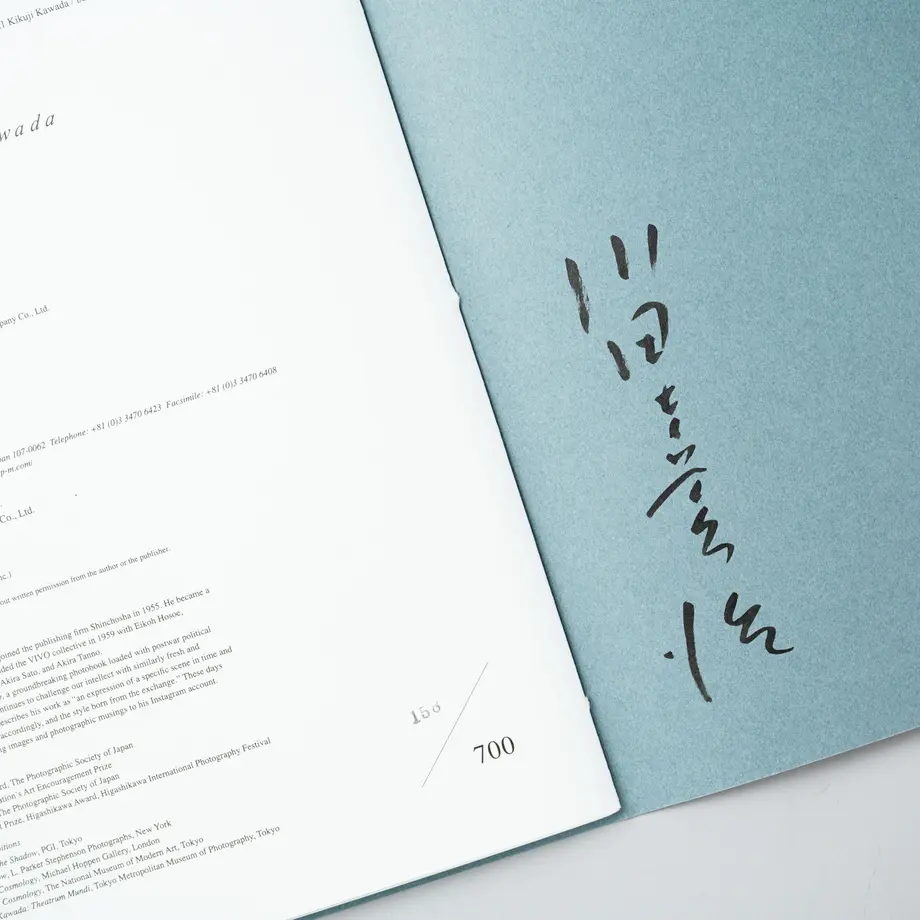 Kikuji Kawada /
wada
pany Co., Ltd.
107-0062 Telephone: +81 (0)3 3470 6423 Facsimile: +81 (0)3 3470 6408
p-m.com/
Co., Ltd.
nc.)
out written permission from the author or the publisher.
oined the publishing firm Shinchosha in 1955. He became a
ded the VIVO collective in 1959 with Eikoh Hosoe,
Akira Sato, and Akira Tanno.
, a groundbreaking photobook loaded with postwar political
ntinues to challenge our intellect with similarly fresh and
escribes his work as "an expression of a specific scene in time and
accordingly, and the style born from the exchange." These days
ng images and photographic musings to his Instagram account.
rd, The Photographic Society of Japan
ation's Art Encouragement Prize
The Photographic Society of Japan
Prize, Higashikawa Award, Higashikawa International Photography Festival
itions
he Shadow, PGI, Tokyo
ow, L. Parker Stephenson Photographs, New York
Cosmology, Michael Hoppen Gallery, London
Cosmology, The National Museum of Modern Art, Tokyo
Kawada: Theatrum Mundi, Tokyo Metropolitan Museum of Photography, Tokyo
700
川田喜久治